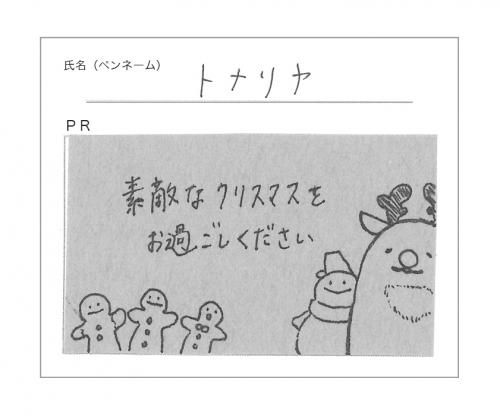 氏名（ペンネーム）
トナリヤ
PR
素敵なクリスマスを
お過ごしください